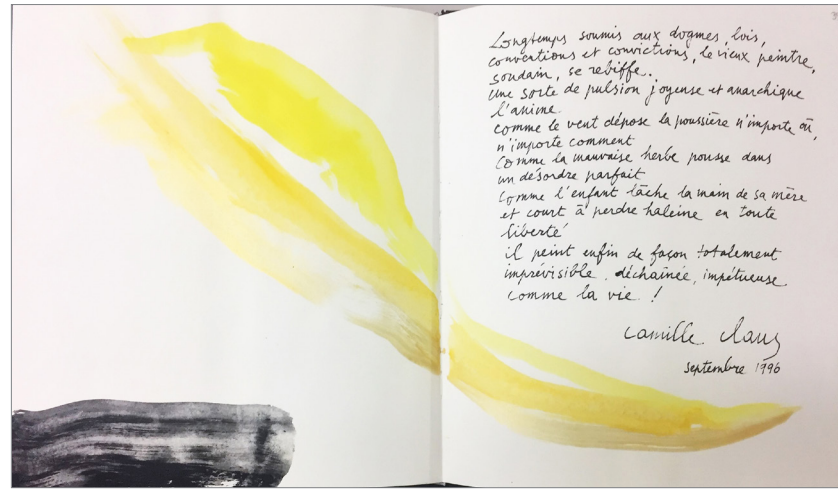 Longtemps soumis aux dogmes, lois,
conventions et convictions, le vieux peintre,
soudain, se rebiffe.
une sorte de pulsion joyeuse et anarchique
l'anime.
comme le vent dépose la poussière n'importe où,
n'importe comment
comme la mauvaise herbe pousse dans
un désordre parfait
comme l'enfant lâche la main de sa mère
et court à perdre haleine en toute
liberté
il peint enfin de façon totalement
imprévisible, déchaînée, impétueuse
comme la vie !
Camille Claus
septembre 1996